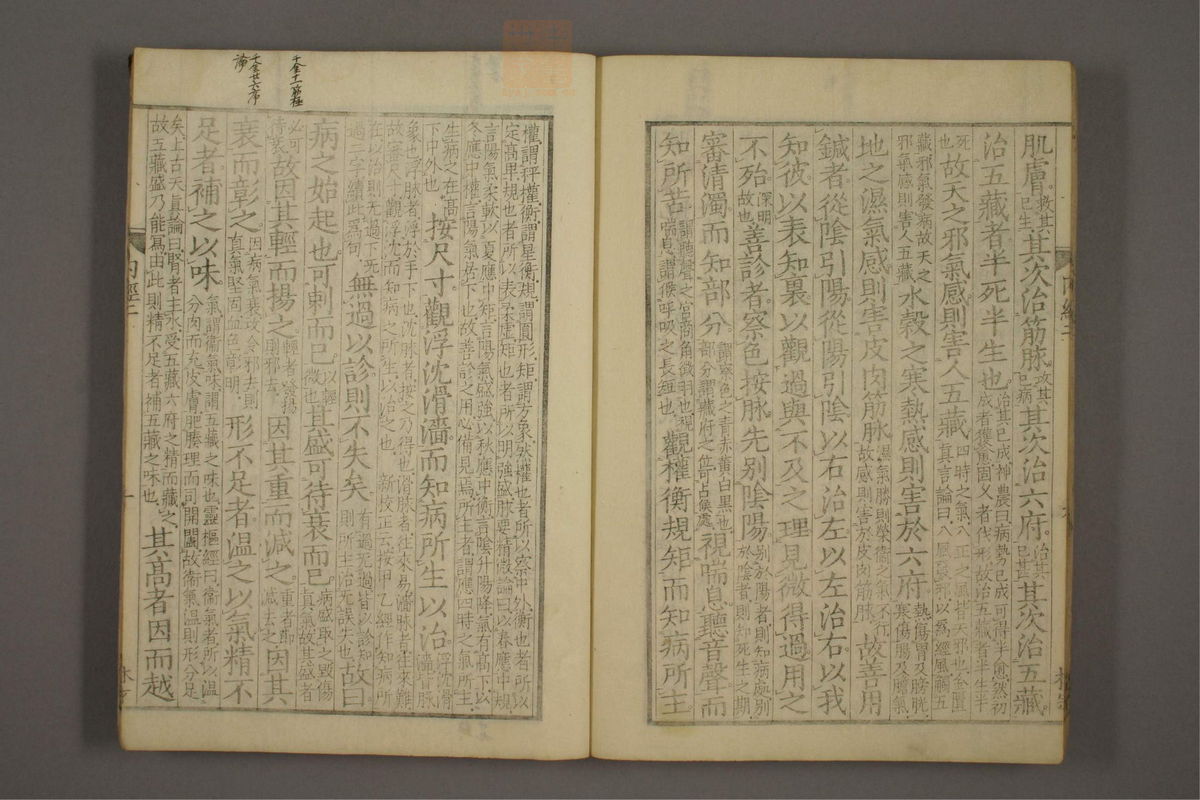 肌膚。救其已生其次治筋脉。攻其已病其次治六府。治其已甚其次治五藏。
治五藏者半死半生也。治其已成神農曰病勢已成可得半愈然初成者獲愈固久者伐形故治五藏者半生半
死也故天之邪氣感則害人五藏四時之氣八正之風皆天邪也金匱真言論曰八風發邪以爲經風觸五
藏邪氣發病故天之邪氣感則害人五藏水穀之寒熱感則害於六府熱傷胃及膀胱寒傷腸及膽氣
地之濕氣感則害皮肉筋脉濕氣勝則榮衛之氣不行故感則害於皮肉筋脉故善用
鍼者從陰引陽從陽引陰以右治左以左治右以我
知彼以表知裏以觀過與不及之理見微得過用之
不殆深明故也善診者察色按脉先別陰陽別於陽者則知病處別於陰者則知死生之期
審清濁而知部分謂察色之青赤黃白黑也部分謂藏府之位可占候處視喘息聽音聲而
知所苦謂聽聲之宮商角徵羽也視喘息謂候呼吸之長短也觀權衡規矩而知病所主
權謂秤權衡謂星衡規謂圓形矩謂方象然權也者所以察中外衡也者所以
定高卑規也者所以表柔虛矩也者所以明強盛脉要精微論曰以春應中規
言陽氣柔軟以夏應中矩言陽氣盛強以秋應中衡言陰升陽降氣有高下以
冬應中權言陽氣居下也故善診之用必備見焉所主者謂應四時之氣所主
生病之在高下中外也按尺寸觀浮沈滑濇而知病所生以治浮沈滑濇皆脉
象也浮脉者浮於手下也沈脉者按之乃得也滑脉者往來易濇脉者往來難
故審尺寸觀浮沈而知病之所生以治之也新校正云按甲乙經作知病所
在以治則无過下无過二字續此爲句無過以診則不失矣有過无過皆以診知則所主治无誤失也故曰
病之始起也可刺而已以輕微也其盛可待衰而已病盛取之毀傷真氣故其盛者
必可待衰故因其輕而揚之輕者發揚則邪去因其重而減之重者即減去之因其
衰而彰之因病氣衰攻令邪去則真氣堅固血色彰明形不足者溫之以氣精不
足者補之以味氣謂衛氣味謂五藏之味也靈樞經曰衛氣者所以溫分肉而充皮膚肥腠理而司開闔故衛氣溫則形分足
矣上古天真論曰腎者主水受五藏六府之精而藏之故五藏盛乃能寫由此則精不足者補五藏之味也其高者因而越
千金十一筋極
千金廿六序論
內經二
內經二